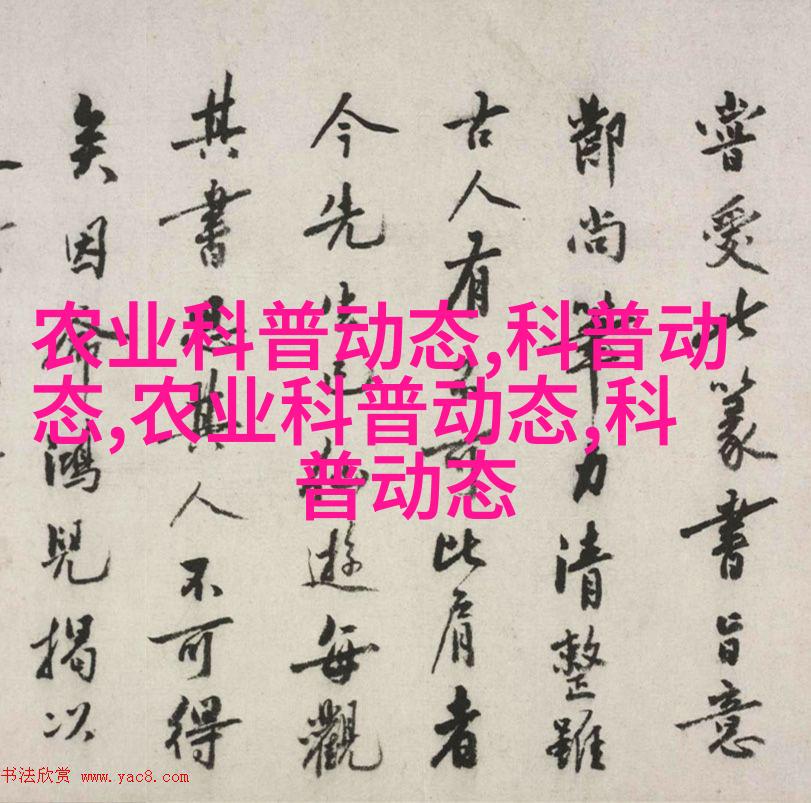 农业科普动态,科普动
态,农业科普动态,科
普动态
嘗愛此篆書旨意
尚筆力清整雖
古人有比肩者
今先生遊每觀
其書其人不可得
矣因鴻兒揭以
书法欣赏 www.yac8.com